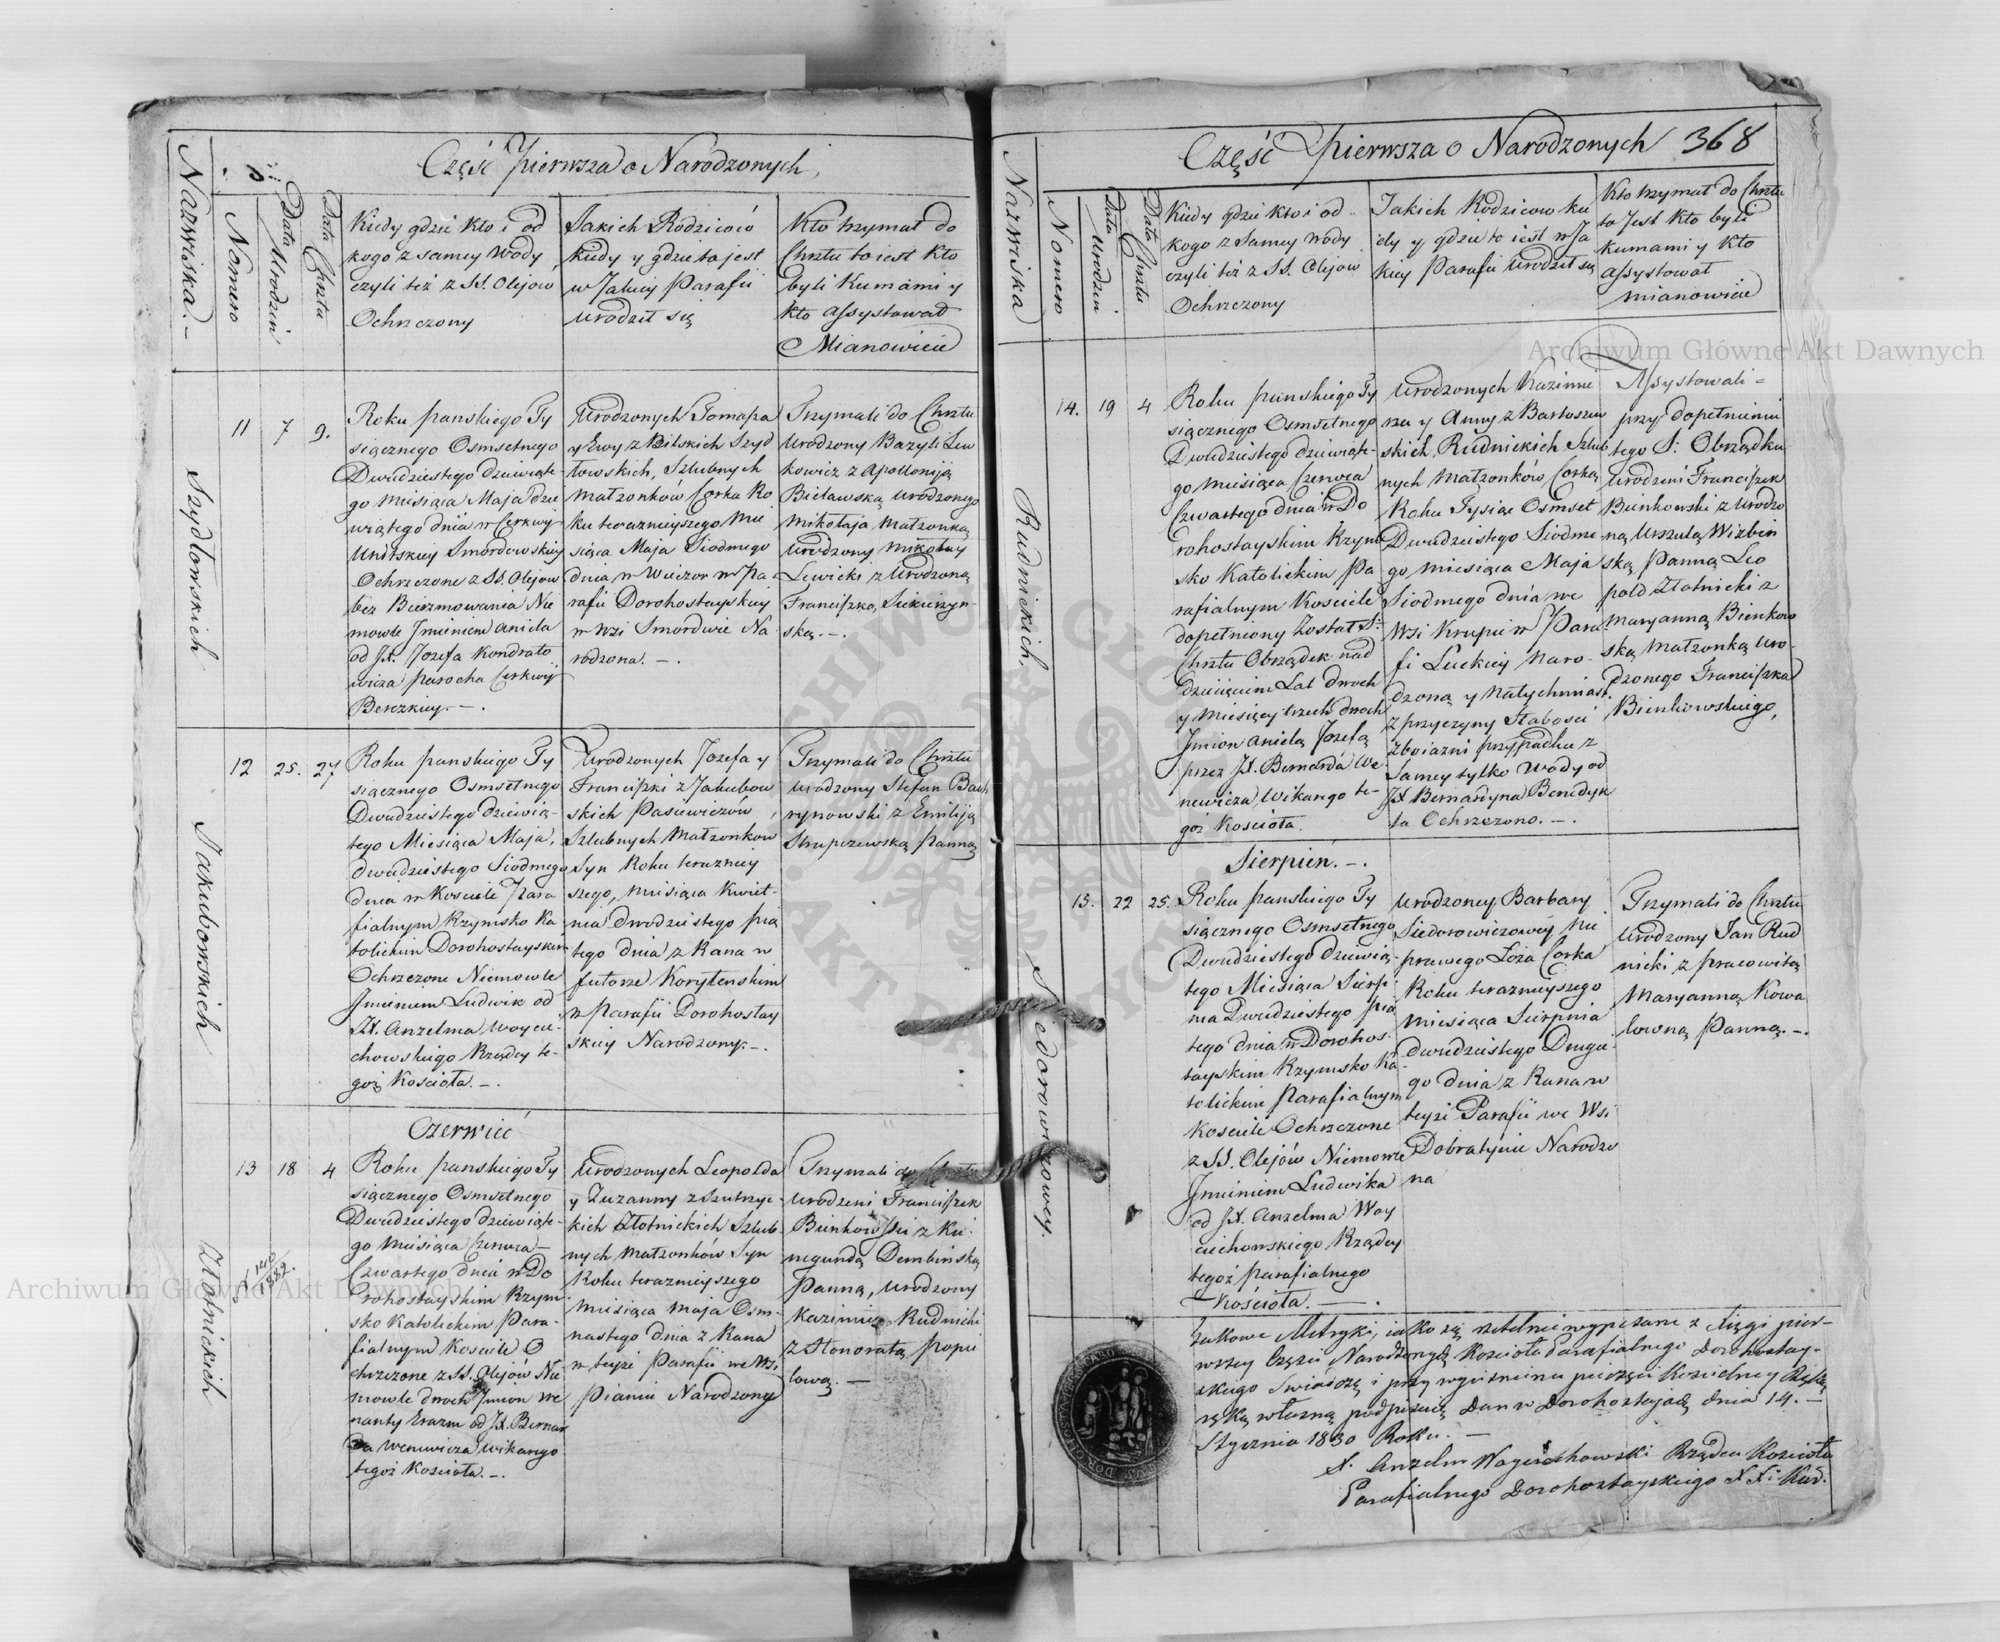 Część Pierwsza o Narodzonych
Nazwiska.-
Nomero
Data Urodzin
Data Chrztu
Kiedy gdzie kto i od
kogo z samey wody
czyli też z SS. Olejów
Ochrzczony
Jakich Rodziców
kiedy y gdzie to jest
w Jakiey Parafii
urodził się
Kto trzymał do
Chrztu to iest kto
byli Kumami y
kto assystował
Mianowicie
Szydłowskich
11 7 9.
Roku panskiego Ty
siącznego Osmsetnego
Dwudziestego dziewiąte-
go miesiąca Maja dzie
wiątego dnia w Cerkwi
Unitskiey Smordowskiey
Ochrzczone z SS. Olejów
bez Bierzmowania Nie
mowle Jmieniem Aniela
od JX. Jozefa Kondrato
wicza parocha Cerkwi
Berezkiey.-.
Urodzonych Tomasza
y Ewy z Bilskich Szyd
łowskich, Szlubnych
małżonków Corka Ro
ku terazniejszego Mie
siąca Maja Siodmego
dnia w Wieczor w Pa
rafii Dorohostayskiey
w Wsi Smordwie Na
rodzona.-.
Trzymali do Chrztu
Urodzony Bazyli Lew
kowicz z Apollonją
Bielawską urodzonego
Mikołaja małżonką
Urodzony Mikołay
Lewicki z Urodzoną
Franciszką Siekierzyn
ską.-.
Jakubowskich
12 25. 27
Roku panskiego Ty
siącznego Osmsetnego
Dwudziestego Dziewią-
tego Miesiąca Maja,
dwudziestego Siodmego
dnia w Kosciele Para
fialnym Rzymsko Ka
tolickim Dorohostayskim
Ochrzczone Niemowle
Jmieniem Ludwik od
JX. Anzelma Woycie-
chowskiego Rządcy te-
goż Kościoła.-.
Urodzonych Jozefa y
Franciszki z Jakubow
skich Pasiewiczów,
Szlubnych Małżonkow
Syn Roku terazniey
szego, miesiąca Kwiet-
nia dwudziestego pią
tego dnia z Rana w
futorze Korytenskim
w Parafii Dorohostay
skiey Narodzony.-.
Trzymali do Chrztu
urodzony Stefan
z Emilją
Strupczewską Panną
Czerwiec
Złotnickich
13 18 4
Roku panskiego Ty
siącznego Osmsetnego
Dwudziestego dziewiąte-
go Miesiąca Czerwca
Czwartego dnia w Do
rohostayskim Rzym
sko Katolickim Para-
fialnym Kosciele O
chrzczone z SS. Olejów Nie
mowle dwoch Jmion We
nanty Erazm od JX. Bernar
da Wenewicza Wikarego
tegoż Kościoła.-.
Urodzonych Leopolda
y Zuzanny
Złotnickich Szlub-
nych małżonków Syn
Roku terazniejszego
miesiąca maja Osm-
nastego dnia z Rana
w teyże Parafii we Wsi
Pianiu Narodzony
Trzymali do Chrztu
urodzeni Franciszek
Bienkowski z Ku-
negundą Dembinską
Panną, urodzony
Kazimierz Rudnicki
z Honoratą Popie
lową.-
Część Pierwsza o Narodzonych 368
Nazwiska
Nomero
Data Urodzin.
Data Chrztu
Kiedy gdzie kto i od
kogo z Samey wody
czyli też z SS. Olejow
Ochrzczony
Jakich Rodzicow kie
dy y gdzie to iest w Ja
kiey Parafii urodził się
Kto trzymał do Chrztu
to Jest kto byli
kumami y kto
assystował
mianowicie
Rudnickich.
14. 19 4
Roku panskiego Ty
siącznego Osmsetnego
Dwudziestego dziewiąte-
go miesiąca Czerwca
Czwartego dnia w Do
rohostayskim Rzym
sko Katolickim Pa
rafialnym Kosciele
dopełniony został S:
Chrztu Obrządek nad
dziecięciem Lat dwoch
y miesięcy trzech dwoch
Jmion Anielą Jozefą
przez JX. Bernarda We-
newicza, Wikarego te-
goż Kościoła.
Urodzonych Kazimie
rza y Anny z Bartoszew
skich Rudnickich Szlub
nych Małżonków Corką
Roku Tysiąc Osmset
Dwudziestego Siodme
go miesiąca Maja
Siodmego dnia we
Wsi Krupie w Para-
fi Łuckiey Naro-
dzoną y natychmiast
z przyczyny Słabosci
z boiazni przypadku z
Samey tylko Wody od
JX Bernardyna Benedyk
ta Ochrzczono.-.
Assystowali-
przy dopełnieniu
tego S: Obrządku
Urodzeni Franciszek
Bienkowski z Urodzo
ną Urszulą Wizbin
ską Panną Leo
pold Złotnicki z
Maryanną Bienkow
ską Małżonką Uro-
dzonego Franciszka
Bienkowskiego,
Sierpień.-.
Siedorowiczowey.
15. 22 25.
Roku panskiego Ty
siącznego Osmsetnego
Dwudziestego Dziewią-
tego Miesiąca Sierp
nia Dwudziestego pią
tego dnia w Dorohos-
tayskim Rzymsko Ka-
tolickim Parafialnym
Kosciele Ochrzczone
z SS. Olejów Niemowle
Jmieniem Ludwika
od JX. Anzelma Woy
ciechowskiego Rządcy
tegoż parafialnego
Kościoła.-.
Urodzoney Barbary
Siedorowiczowey nie
prawego Łoża Corka
Roku terazniejszego
miesiąca Sierpnia
dwudziestego Drugie
go dnia z Rana w
teyże Parafii we Wsi
Dobratynie Narodzo
na
Trzymali do Chrztu
Urodzony Jan Rud
nicki z pracowitą
Maryanną Kowa
lowną Panną.-.
takowe Metryki, iako są rzetelnie wypisane z xięgi pier-
wszey Części Narodzonych Kościoła Parafialnego Dorohostay-
skiego Swiadczę i przy wyciśnieniu pieczęci Kościelney Ręką
własną podpisuię Dan w Dorohostajach dnia 14.-
Stycznia 1830 Roku.-
X. Anzelm Woyciechowski Rządca Kościoła
Parafialnego Dorohostayskiego
Archiwum Główne Akt Dawnych
Archiwum Główne Akt Dawnych